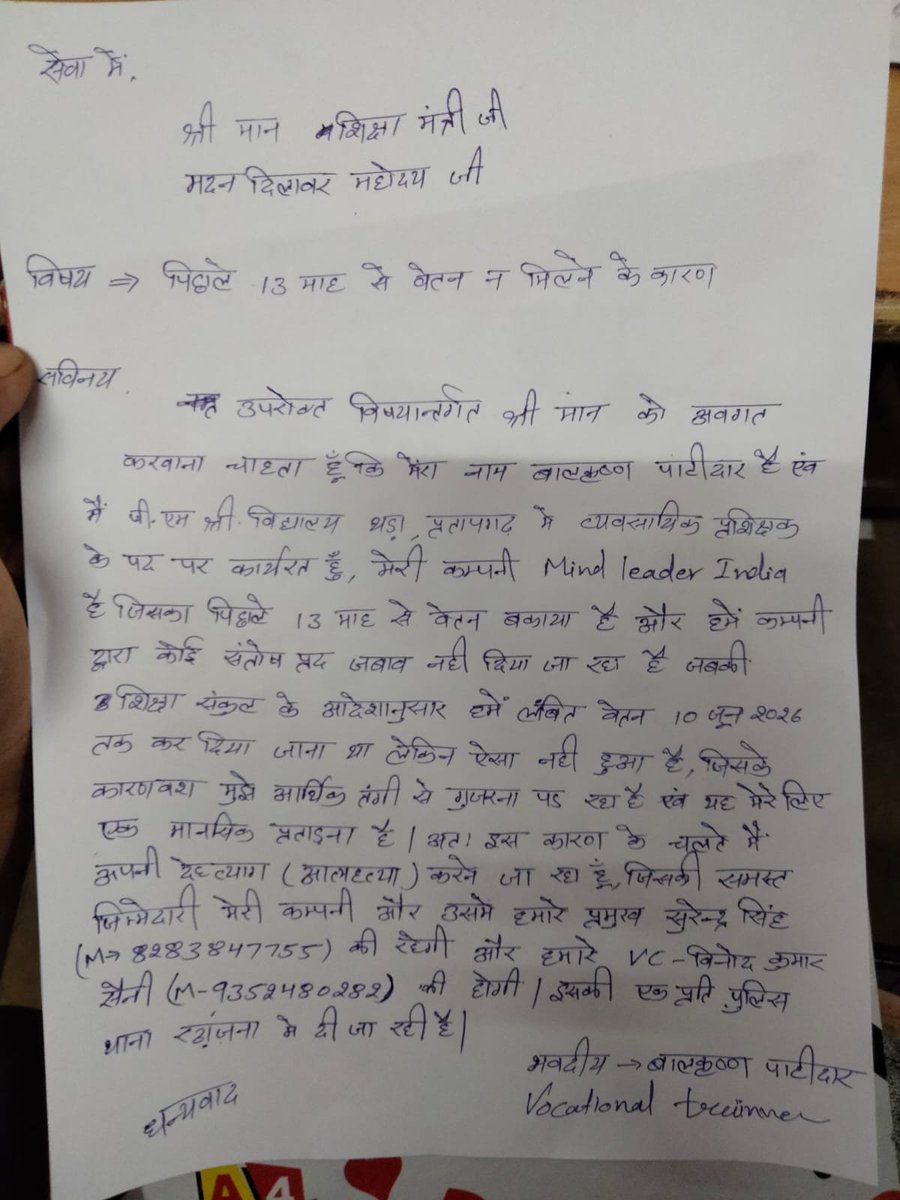 सेवा में,
श्री मान शिक्षा मंत्री जी
मदन दिलावर महोदय जी
विषय ⇒ पिछले 13 माह से वेतन न मिलने के कारण
सविनय
उपरोक्त विषयान्तर्गत श्री मान को अवगत
करवाना चाहता हूँ कि मेरा नाम बालकृष्ण पाटीदार है एंव
मैं पी.एम श्री. विद्यालय थड़ा, प्रतापगढ मे व्यवसायिक प्रशिक्षक
के पद पर कार्यरत हूँ, मेरी कम्पनी Mind leader India
है जिसका पिछले 13 माह से वेतन बकाया है और हमें कम्पनी
द्वारा कोई संतोष प्रद जबाव नही दिया जा रहा है जबकी
शिक्षा संकुल के आदेशानुसार हमें लंबित वेतन 10 जून 2026
तक कर दिया जाना था लेकिन ऐसा नही हुआ है, जिसके
कारणवश मुझे आर्थिक तंगी से गुजरना पड रहा है एंव यह मेरे लिए
एक मानसिक प्रताडना है | अतः इस कारण के चलते मैं
अपनी देहत्याग (आत्महत्या) करने जा रहा हूँ, जिसकी समस्त
जिम्मेदारी मेरी कम्पनी और उसमे हमारे प्रमुख सुरेन्द्र सिंह
(M→ 8283847755) की रहेगी और हमारे VC-विनोद कुमार
सैनी (M-9352480282) की होगी | इसकी एक प्रति पुलिस
थाना रठांजना मे दी जा रही है |
भवदीय → बालकृष्ण पाटीदार
Vocational
धन्यवाद
A4